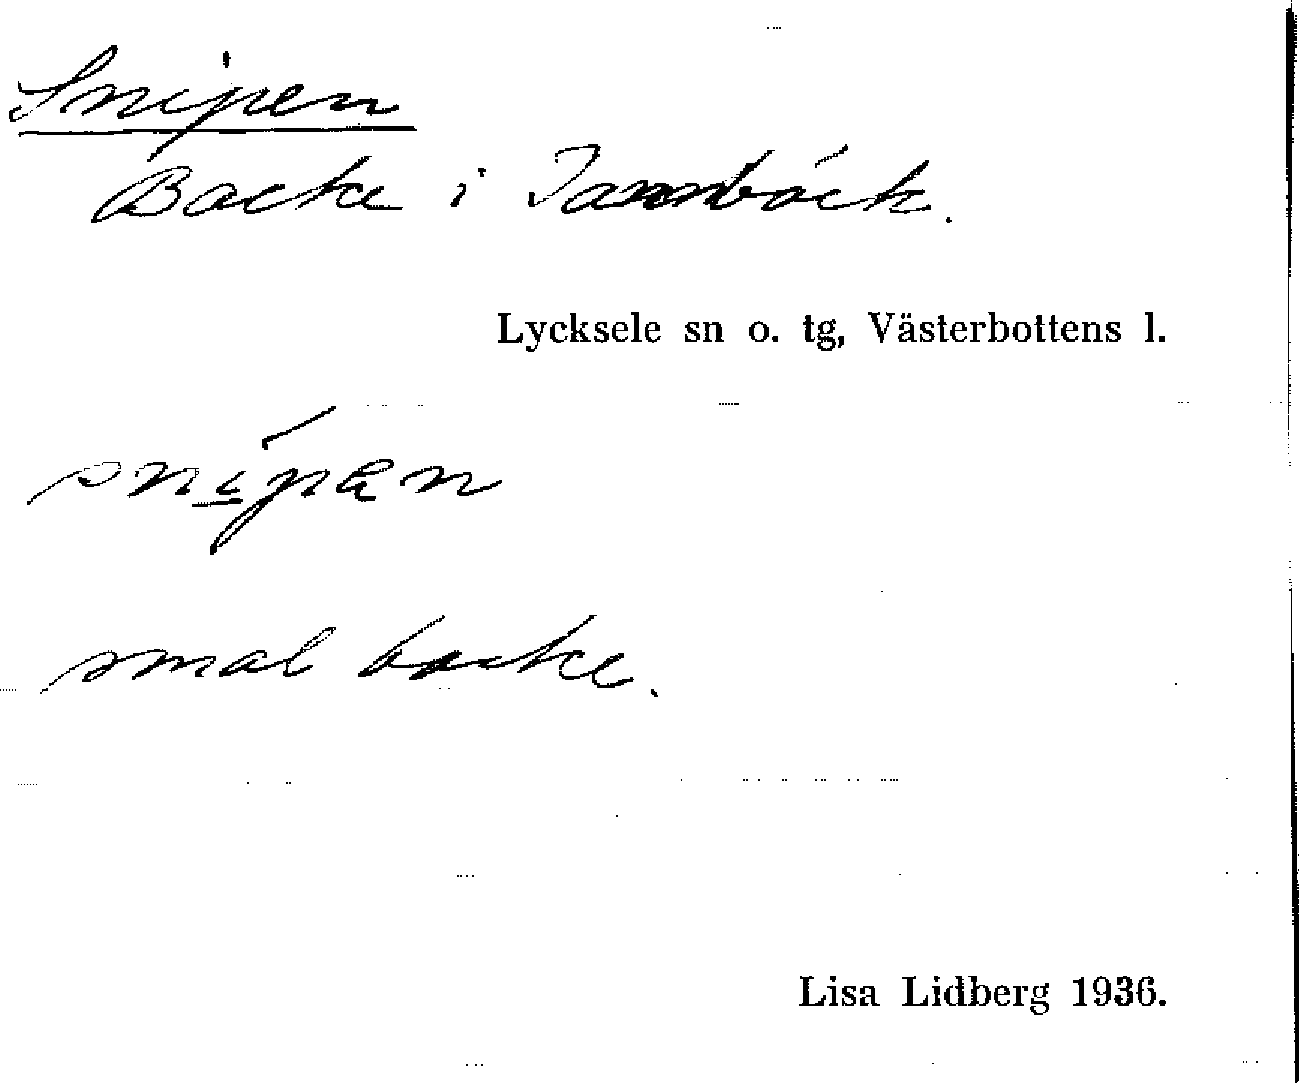 Snipen
Backe i Tannbäck.
Lycksele sn o. tg, Västerbottens l.
snipan
smal backe.
Lisa Lidberg 1936.